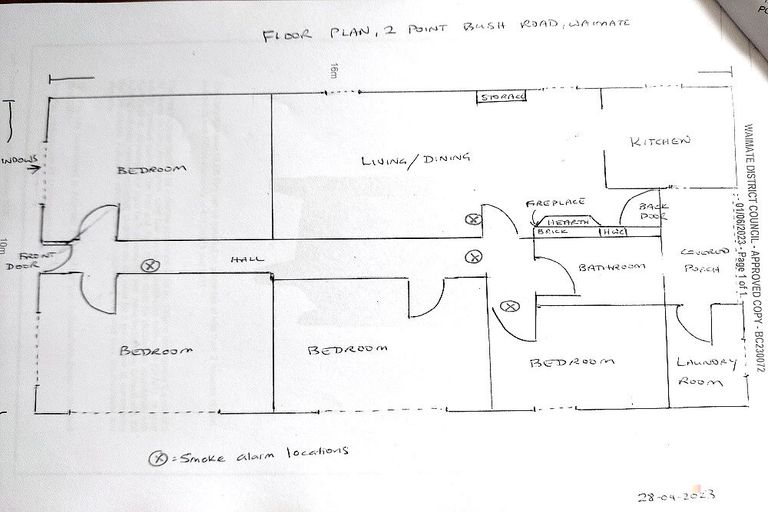 FLOOR PLAN, 2 POINT BUSH ROAD, WAIMATE
16m
STORAGE
KITCHEN
LIVING/DINING
BEDROOM
INDOWS
FIREPLACE
HEARTH
BRICK
HWC
BACK
DOOR
10m
FRONT
DOOR
HALL
BATHROOM
COVERED
PORCH
BEDROOM
BEDROOM
BEDROOM
LAUNDRY
ROOM
WAIMATE DISTRICT COUNCIL - APPROVED COPY - BC230072
- 01/06/2023 - Page 1 of 1
Ⓧ = Smoke alarm locations
28-04-2023